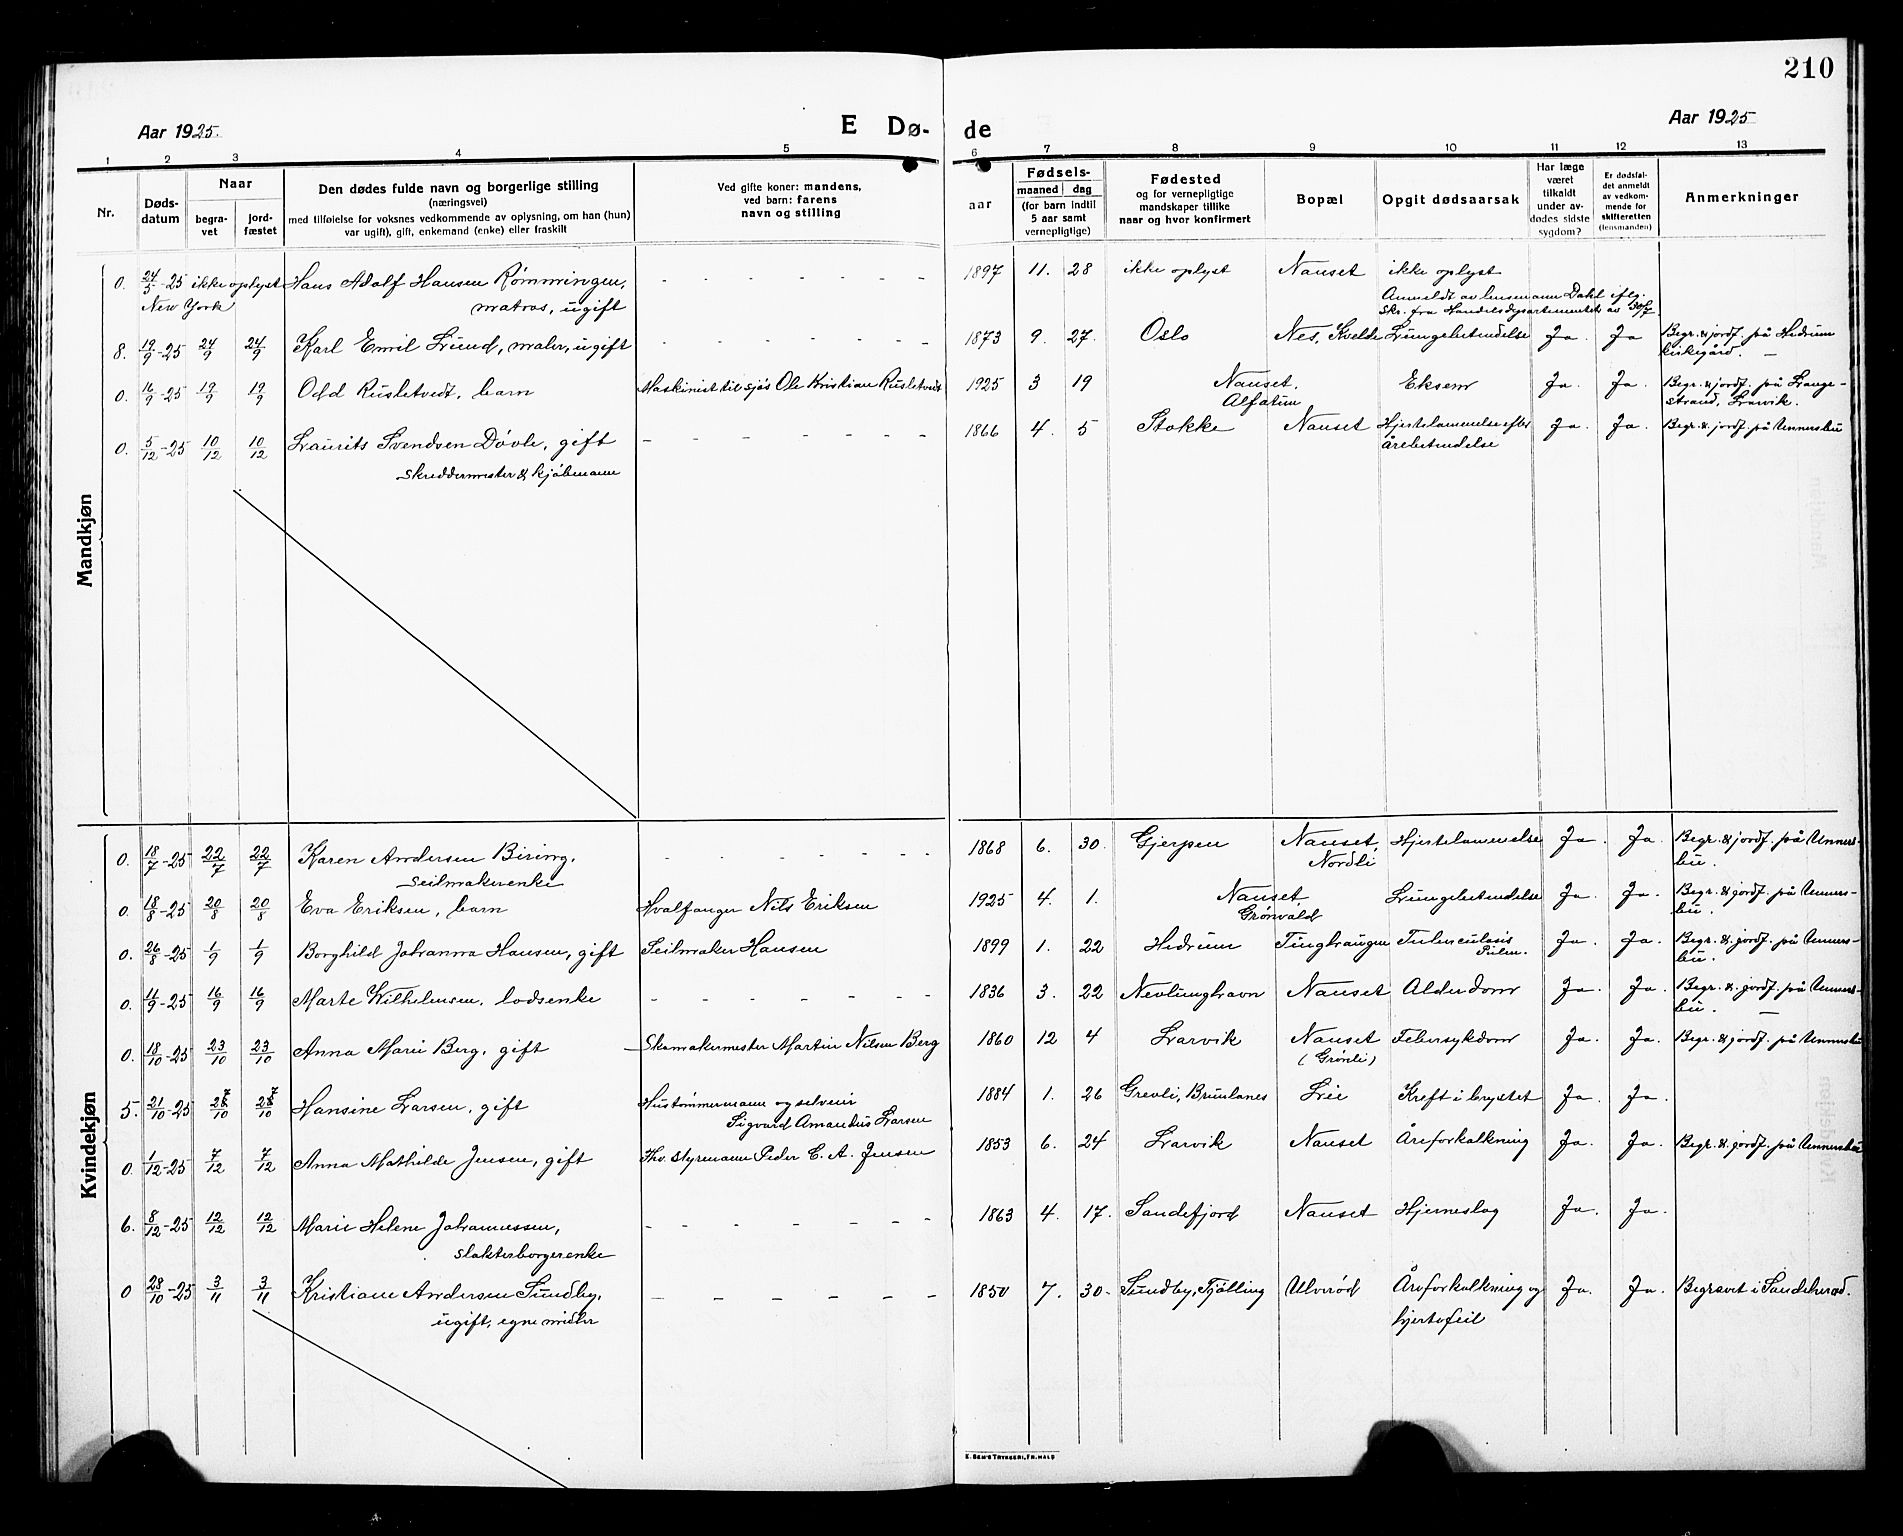 210
Aar 1925.
E Dø- de
Aar 1925
1 2 3 4 5 6 7 8 9 10 11 12 13
Nr.
Døds-
datum
Naar
begra-
vet
jord-
fæstet
Den dødes fulde navn og borgerlige stilling
(næringsvei)
med tilføielse for voksnes vedkommende av oplysning, om han (hun)
var ugift), gift, enkemand (enke) eller fraskilt
Ved gifte koner: mandens,
ved barn: farens
navn og stilling
Fødsels-
aar
maaned dag
(for barn indtil
5 aar samt
vernepligtige)
Fødested
og for vernepligtige
mandskaper tillike
naar og hvor konfirmert
Bopæl
Opgit dødsaarsak
Har læge
været
tilkaldt
under av-
dødes sidste
sygdom?
Er dødsfal-
det anmeldt
av vedkom-
mende for
skifteretten
(lensmanden)
Anmerkninger
Mandkjøn
0. 24/5-25 ikke oplyst Hans Adolf Hansen Rømmingen, - - - - - - - 1897 11. 28 ikke oplyst Nanset ikke oplyst
New York matros, ugift Anmeldt av lensmann Dahl iflg.
skr. fra Handelsdepartementet av 30/7
8. 19/9-25 24/9 24/9 Karl Emil Lund, maler, ugift - - - - - - - 1873 9. 27. Oslo Nes, Kvelde Lungebetendelse Ja. Ja Begr. & jordf. på Hedrum
kirkegård. -
0. 16/9-25 19/9 19/9 Odd Rusletvedt, barn Maskinist til sjøs Ole Kristian Rusletvedt 1925 3 19 Nanset, Eksem Ja. Ja. Begr. & jordf. på Lange-
Alfatun strand, Larvik.
0. 5/12-25 10/12 10/12 Laurits Svendsen Døvle, gift - - - - - - - 1866 4. 5 Stokke Nanset Hjertelammelse efter Ja. Ja. Begr. & jordf. på Unnersbu
skreddermester & kjøbmann årebetendelse
Kvindekjøn
0. 18/7-25 22/7 22/7 Karen Andersen Biring, - - - - - - - 1868 6. 30. Gjerpen Nanset, Hjertelammelse Ja. Ja. Begr. & jordf. på Unners-
seilmakerenke Nordli bu.
0. 18/8-25 20/8 20/8 Eva Eriksen, barn Hvalfanger Nils Eriksen 1925 4. 1. Nanset, Lungebetendelse Ja. Ja. Begr. & jordf. på Unners-
Grønvald bu.
0. 26/8-25 1/9 1/9 Borghild Johanna Hansen, gift Seilmaker Hansen 1899 1. 22 Hedrum Tinghaugen Tuberculosis Ja. Ja. Begr. & jordf. på Unners-
Pulm. bu.
0. 11/9-25 16/9 16/9 Marte Wilhelmsen, losenke - - - - - - - 1836 3. 22 Nevlunghavn Nanset Alderdom Ja. Ja. Begr. & jordf. på Unners-
bu. -
0. 18/10-25 23/10 23/10 Anna Marie Berg, gift - Skomakermester Martin Nilsen Berg 1860 12 4 Larvik Nanset Febersykdom Ja. Ja. Begr. & jordf. på Unnersbu
(Grønli)
5. 21/10-25 27/10 27/10 Hansine Larsen, gift Hustømmermann og selveier 1884 1. 26 Grevli, Brunlanes Lie Kreft i brystet Ja. Ja.
Sigvard Amandus Larsen
0. 1/12-25 7/12 7/12 Anna Mathilde Jensen, gift Fhv. styrmann Peder C. A. Jensen 1853 6. 24 Larvik Nanset Åreforkalkning Ja. Ja. Begr. & jordf. på Unnersbu
6. 8/12-25 12/12 12/12 Marie Helene Johannessen, - - - - - - - 1863 4. 17. Sandefjord Nanset Hjerneslag Ja. Ja.
slakterborgerenke
0 28/10-25 3/11 3/11 Kristiane Andersen Sundby, - - - - - - - 1850 7. 30- Sundby, Tjølling Ulverød Åreforkalkning og Ja. Ja. Begravet i Sandeherad.
ugift, egne midler hjertefeil
E. SEM'S TRYKKERI, FR.HALD